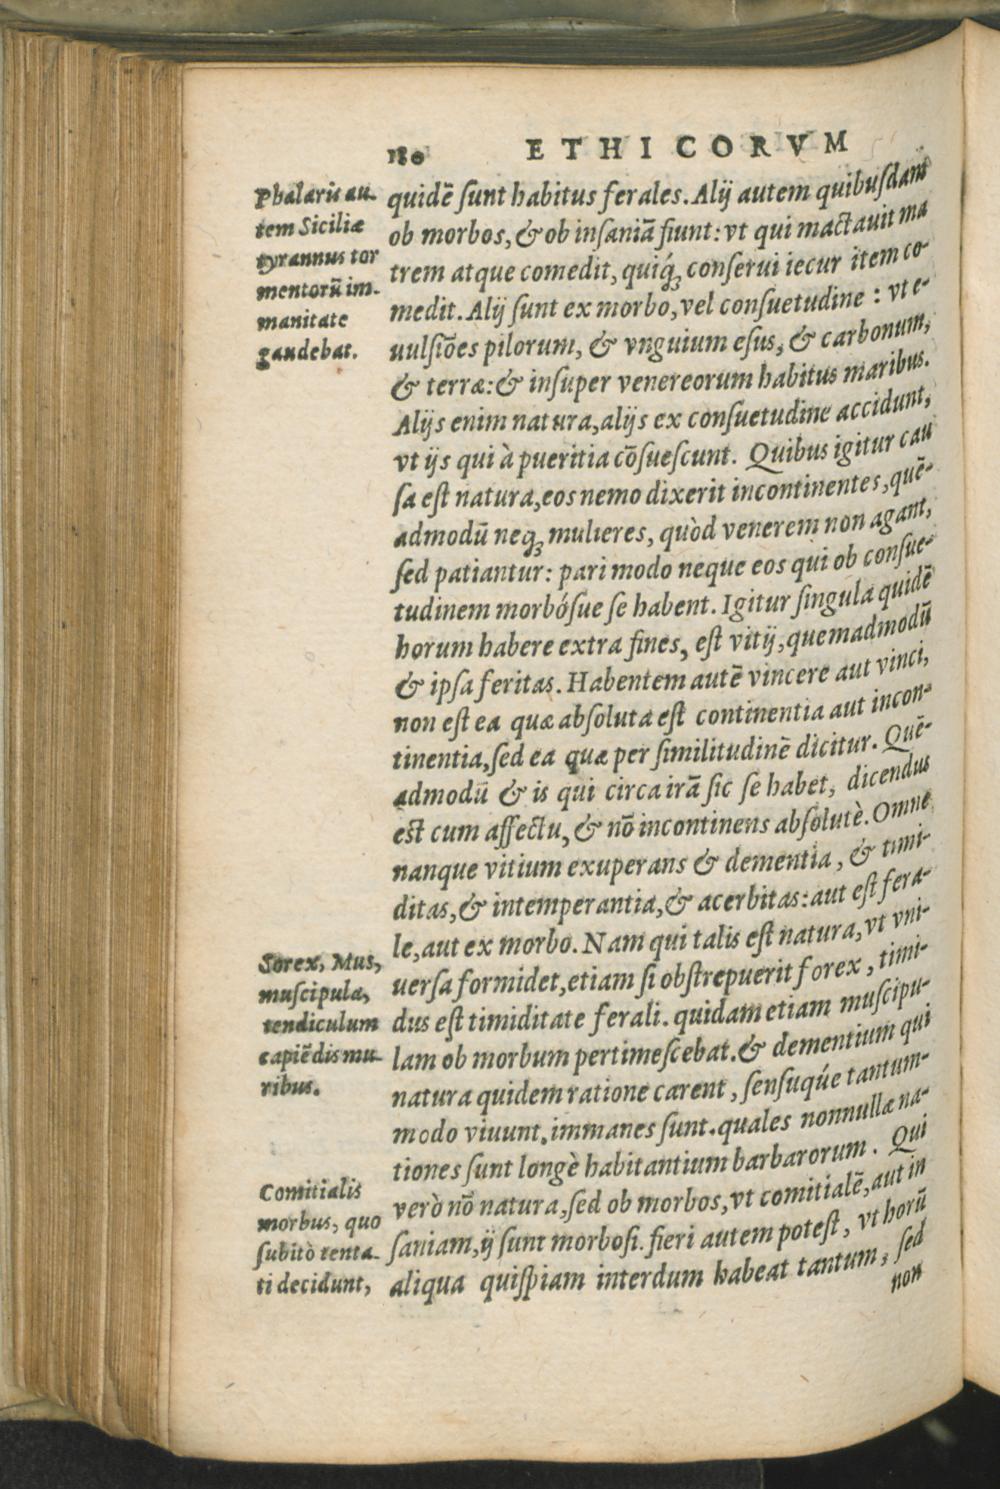 180 ETHICORVM
Phalaris au-
tem Siciliæ
tyrannus tor
mentorū im-
manitate
gaudebat.
quidē ſunt habitus ferales. Alij autem quibuſdam
ob morbos, & ob inſaniā fiunt: vt qui mactauit ma
trem atque comedit, quiq́ꝫ conſerui iecur item co-
medit. Alij ſunt ex morbo, vel conſuetudine: vt e-
uulſiōes pilorum, & vnguium eſus, & carbonum,
& terræ: & inſuper venereorum habitus maribus.
Alijs enim natura, alijs ex conſuetudine accidunt,
vt ijs qui à pueritia cōſueſcunt. Quibus igitur cau
ſa eſt natura, eos nemo dixerit incontinentes, quē-
admodū neqꝫ mulieres, quòd venerem non agant,
ſed patiantur: pari modo neque eos qui ob conſue-
tudinem morbóſue ſe habent. Igitur ſingula quidē
horum habere extra fines, eſt vitij, quemadmodū
& ipſa feritas. Habentem autē vincere aut vinci,
non eſt ea quæ abſoluta eſt continentia aut incon-
tinentia, ſed ea quæ per ſimilitudinē dicitur. Quē-
admodū & is qui circa irā ſic ſe habet, dicendus
eſt cum affectu, & nō incontinens abſolutè. Omne
nanque vitium exuperans & dementia, & timi-
ditas, & intemperantia, & acerbitas: aut eſt fera-
le, aut ex morbo. Nam qui talis eſt natura, vt vni-
uerſa formidet, etiam ſi obſtrepuerit ſorex, timi-
dus eſt timiditate ferali. quidam etiam muſcipu-
lam ob morbum pertimeſcebat. & dementium qui
natura quidem ratione carent, ſenſuq́ue tantum-
modo viuunt, immanes ſunt. quales nonnullæ na-
tiones ſunt longè habitantium barbarorum. Qui
verò nō natura, ſed ob morbos, vt comitialē, aut in
ſaniam, ij ſunt morboſi. fieri autem poteſt, vt horū
aliqua quiſpiam interdum habeat tantum, ſed
non
Sorex, Mus,
muſcipula,
tendiculum
capiēdis mu-
ribus.
Comitialis
morbus, quo
ſubitò tenta-
ti decidunt,